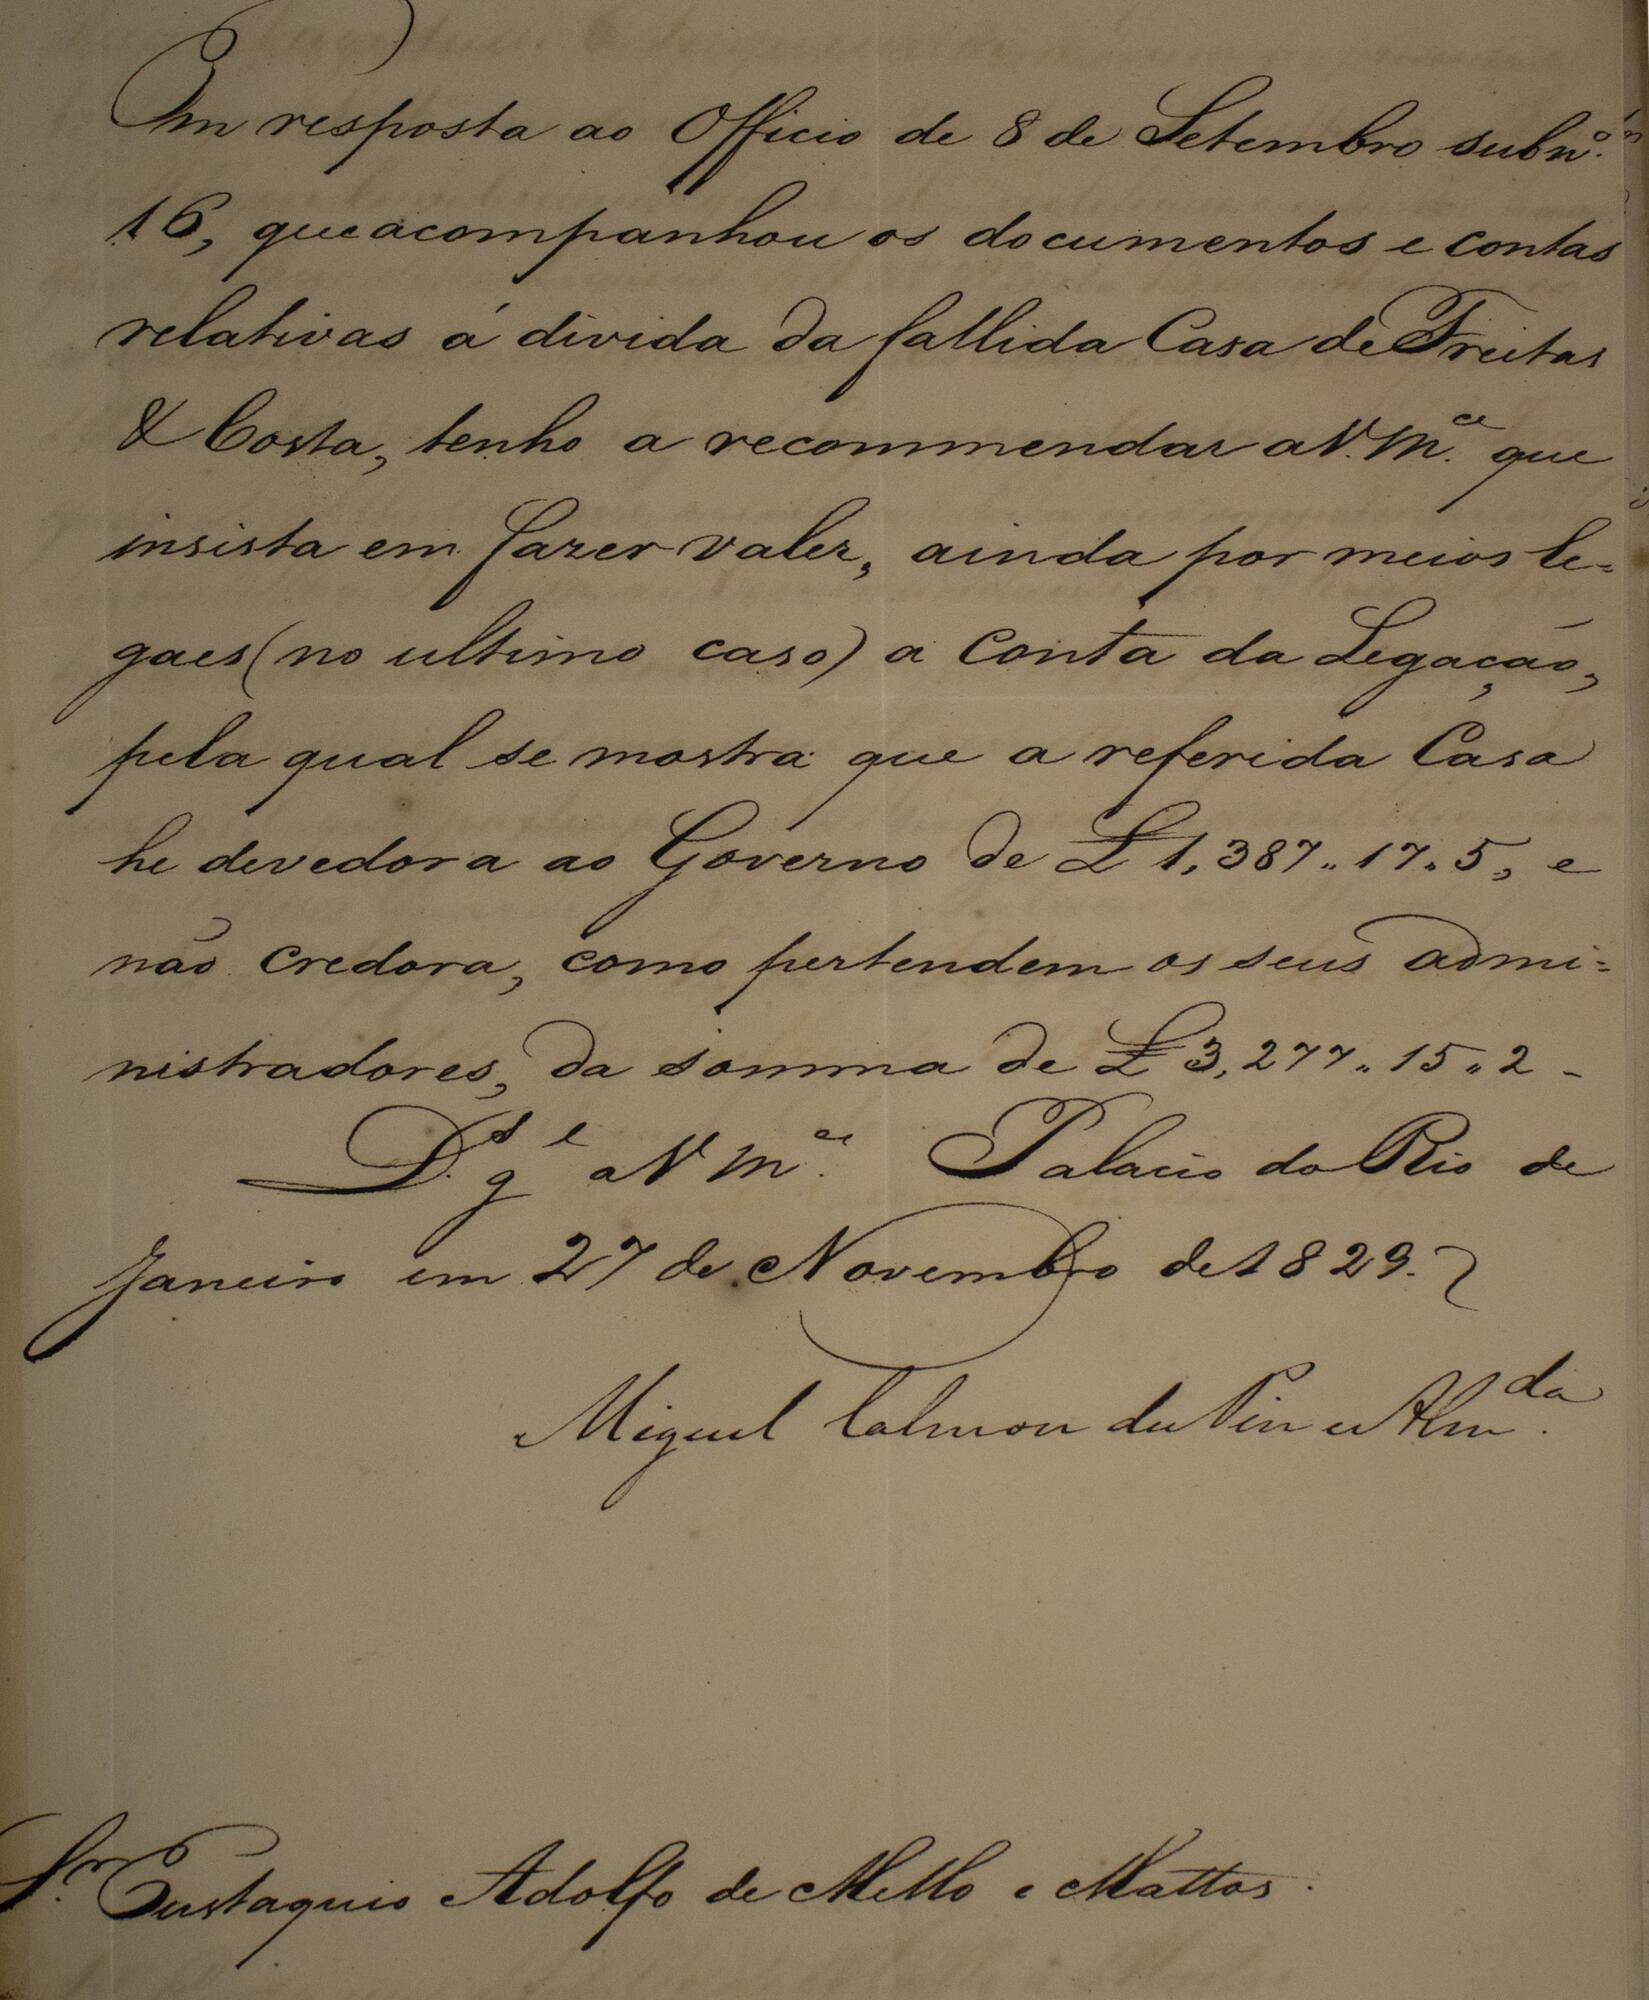 Em resposta ao Officio de 8 de Setembro sub nº.
16, que acompanhou os documentos e contas
relativas á divida da fallida Casa de Freitas
& Costa, tenho a recommendar a V. M.ce que
insista em fazer valer, ainda por meios le=
gaes (no ultimo caso) a conta da Legação,
pela qual se mostra que a referida Casa
he devedora ao Governo de £ 1,387,, 17,, 5, e
não credora, como pertendem os seus admi=
nistradores, da somma de £ 3,277,, 15,, 2 -
D.s g.e a V M.ce Palacio do Rio de
Janeiro em 27 de Novembro de 1829.
Miguel Calmon du Pin e Alm.da
S.r Eustaquio Adolfo de Mello e Mattos.